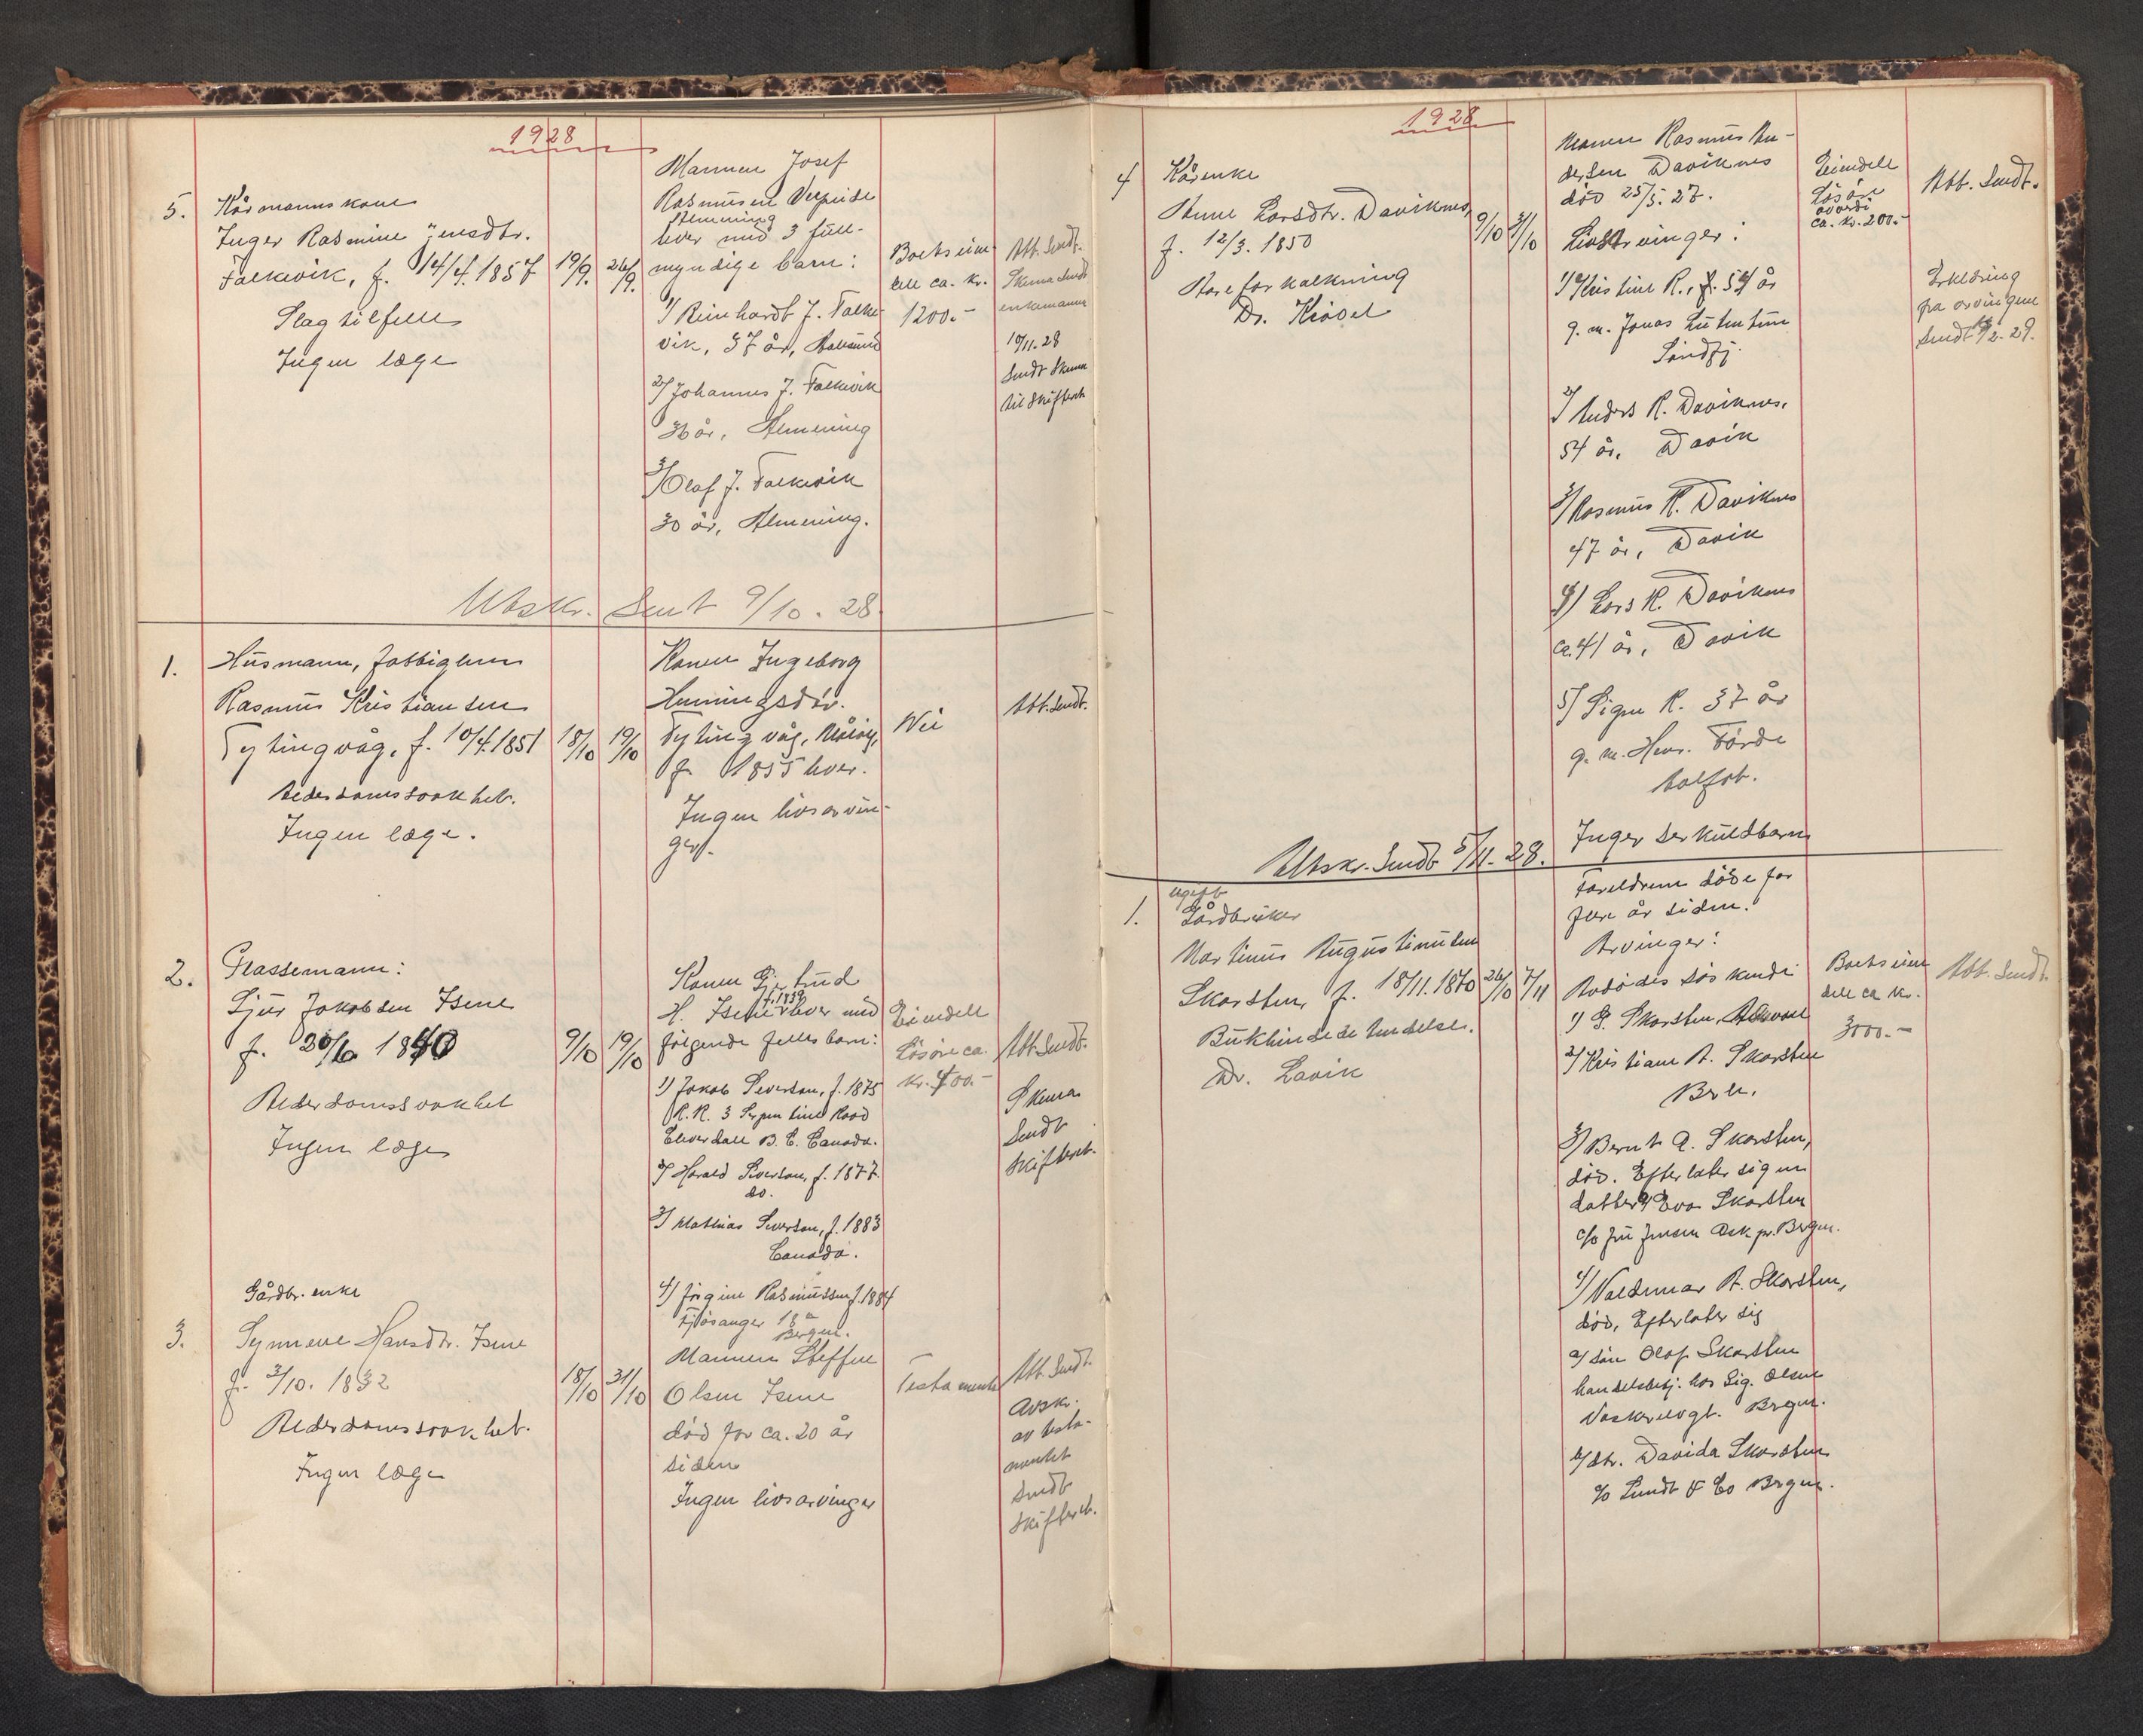 1928
5.
Kårmannskone
Inger Rasmine Jensdtr.
Falkevik, f. 14/4. 1857
Slagtilfelle
Ingen læge
19/9.
26/9.
Mannen Josef
Rasmusen
Almenning
lever med 3 full-
myndige barn:
1) Reinhardt J. Falke-
vik, 37 år,
2) Johannes J. Falkevik
36 år, Almenning
3) Olaf J. Falkevik
30 år, Almenning.
Boets eien-
dele ca. kr.
1200.-
Att. sendt.
Skema sendt
enkemann
10/11. 28
sendt skema
til skifterett
Utskr. sent 9/10. 28.
1.
Husmann, fattiglem
Rasmus Kristiansen
Tytingvåg, f. 10/4. 1851
Alderdomssvakhet.
Ingen læge.
18/10
19/10
Konen Ingeborg
Henningsdtr.
Tytingvåg, Måløy,
f. 1855 lever.
Ingen livsarvin-
ger.
Nei
Att. sendt.
2.
Plassemann:
Sjur Jakobsen Isene
f. 30/6 1840
Alderdomssvakhet
Ingen læge
9/10
19/10
Konen Gjertrud
f. 1839
H. Isene lever med
følgende felles barn:
1) Jakob Severson, f. 1875
R. R. 3 Serpentine Road
Cloverdale B. C. Canada.
2) Harald Severson, f. 1877.
do.
3) Mathias Severson, f. 1883
Canada.
4) Jørgine Rasmussen f. 1884
Fjøsanger 18a
Bergen.
Eiendele
Løsøre ca.
kr. 400.-
Att. sendt.
Skema
sendt
skifterett.
3.
Gårdbr. enke
Synneve Hansdtr. Isene
f. 3/10. 1832
Alderdomssvakhet.
Ingen læge
18/10
31/10
Mannen Steffen
Olsen Isene
død for ca. 20 år
siden
Ingen livsarvinger
Testamente
Att. sendt.
Avskr.
av testa-
mentet
sendt
skifterett.
1928
4
Kårenke
Anne Larsdtr. Daviknes,
f. 12/3. 1850
Åreforkalkning
Dr. Kjødel
9/10
3/10
Mannen Rasmus An-
dersen Daviknes
død 25/5. 27.
Livsarvinger:
1) Kristine R., 59 år
g. m. Jonas
Søndfj.
2) Anders R. Daviknes.
54 år, Davik
3) Rasmus R. Daviknes
47 år, Davik
4) Lars R. Daviknes
ca. 41 år, Davik
5) Signe R. 37 år
g. m. Henr. Førde
Kalfst.
Ingen særkuldbarn
Eiendele
Løsøre
av verdi
ca. kr. 200.-
Att. sendt.
Erklæring
fra arvingene
sendt /2. 29.
Utskr. sendt 5/11. 28.
1.
ugift
Gårdbruker
Martinus Augustinusen
Skorsten, f. 18/11. 1870
Bukhindebetendelse.
Dr. Lavik
26/10
7/11
Foreldrene døde for
flere år siden.
Arvinger:
Avdødes søskende
1) G. Skorsten,
2) Kristiane A. Skorsten
Brh.
3) Bernt A. Skorsten,
død. Efterlater sig en
datter Eva Skorsten
c/o Fru Jensen Ask pr. Bergen.
4) Valdemar A. Skorsten,
død, Efterlater sig
a/ søn Olaf Skorsten
handelsbetj. hos Sig. Olsen
Vaskerelvgt. Bergen.
b/ dtr. Davida Skorsten
c/o Sundt & Co Bergen.
Boets eien-
dele ca kr.
3000.-
Att. sendt.